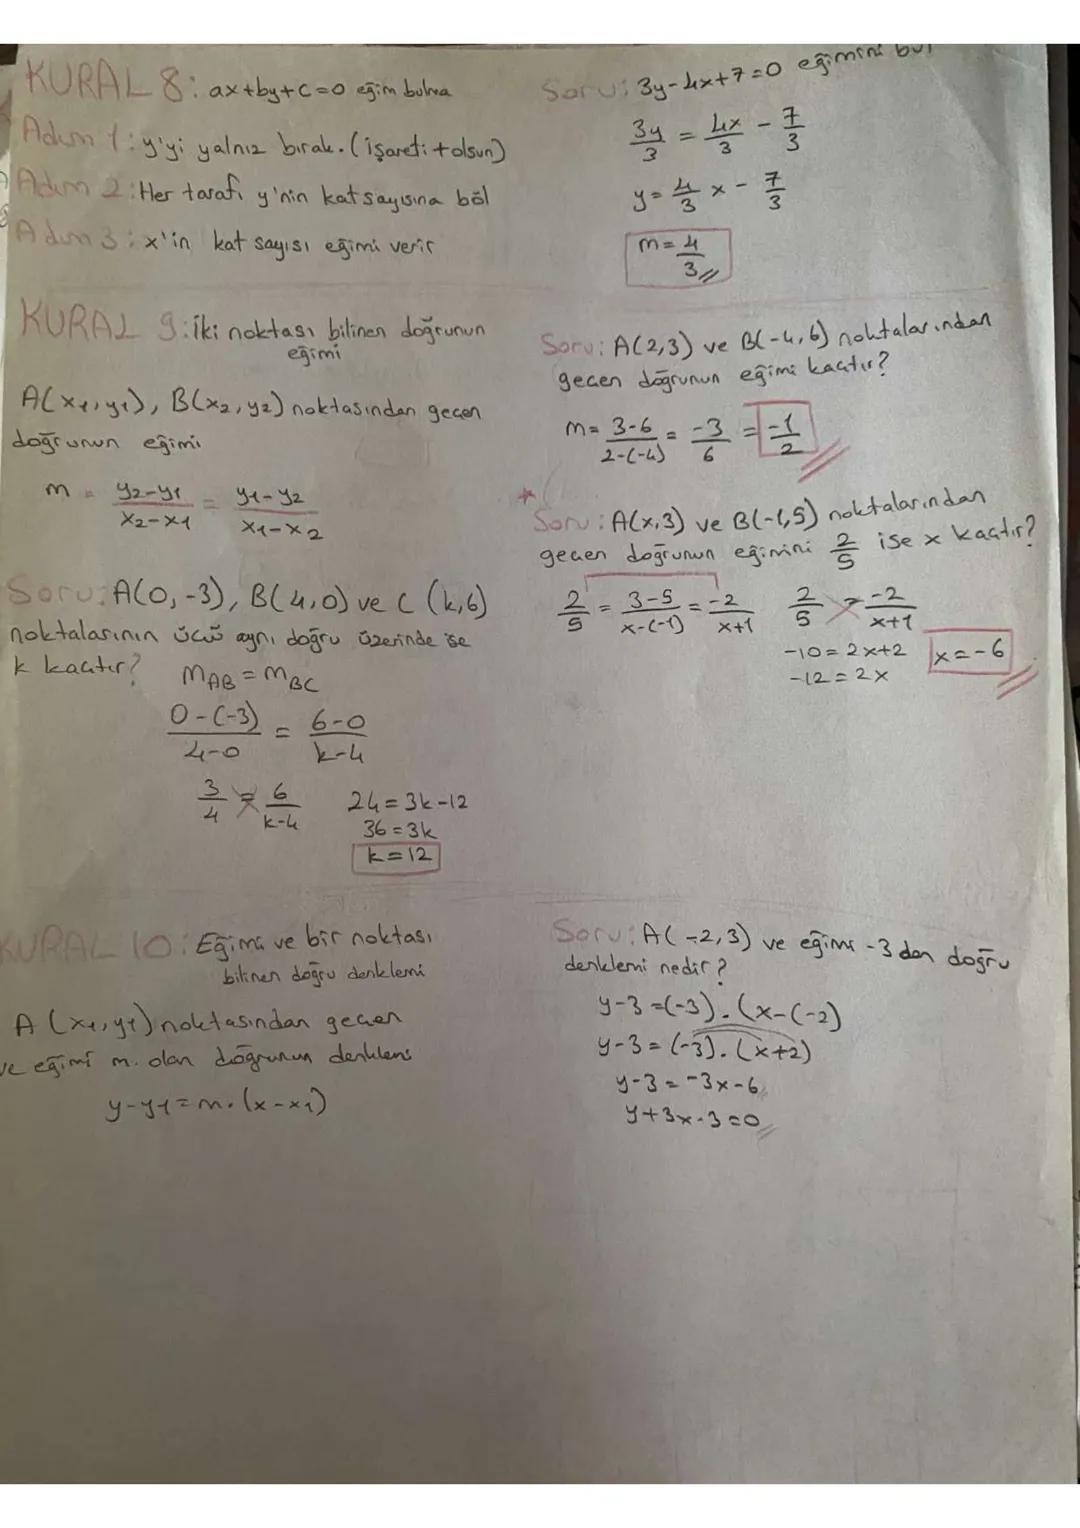 KURAL 8: ax+by+c=0 eğim bulma
Adım 1: y'yi yalnız bırak. (işareti + olsun)
Adım 2: Her tarafı y'nin katsayısına böl
Adım 3: x'in kat sayısı eğimi verir
Soru: 3y-4x+7=0 eğimini bul
3y/3 = 4x/3 - 7/3
y = 4/3 x - 7/3
m = 4/3
KURAL 9: İki noktası bilinen doğrunun
eğimi
A(x1,y1), B(x2,y2) noktasından geçen
doğrunun eğimi
m = y2-y1/x2-x1 = y1-y2/x1-x2
Soru: A(2,3) ve B(-4,6) noktalarından
geçen doğrunun eğimi kaçtır?
m = 3-6/2-(-4) = -3/6 = -1/2
Soru: A(x,3) ve B(-1,5) noktalarından
geçen doğrunun eğimini 2/5 ise x kaçtır?
2/5 = 3-5/x-(-1) = -2/x+1
2/5 = -2/x+1
-10 = 2x+2
-12 = 2x
x = -6
Soru: A(0,-3), B(4,0) ve C (k,6)
noktalarının üçü aynı doğru üzerinde ise
k kaçtır?
mAB = mBC
0-(-3)/4-0 = 6-0/k-4
3/4 = 6/k-4
24 = 3k-12
36 = 3k
k = 12
KURAL 10: Eğimi ve bir noktası
bilinen doğru denklemi
A (x1,y1) noktasından geçen
ve eğimi m. olan doğrunun denklemi
y-y1 = m.(x-x1)
Soru: A(-2,3) ve eğimi -3 den doğru
denklemi nedir?
y-3 = (-3).(x-(-2)
y-3 = (-3).(x+2)
y-3 = -3x-6
y+3x-3=0